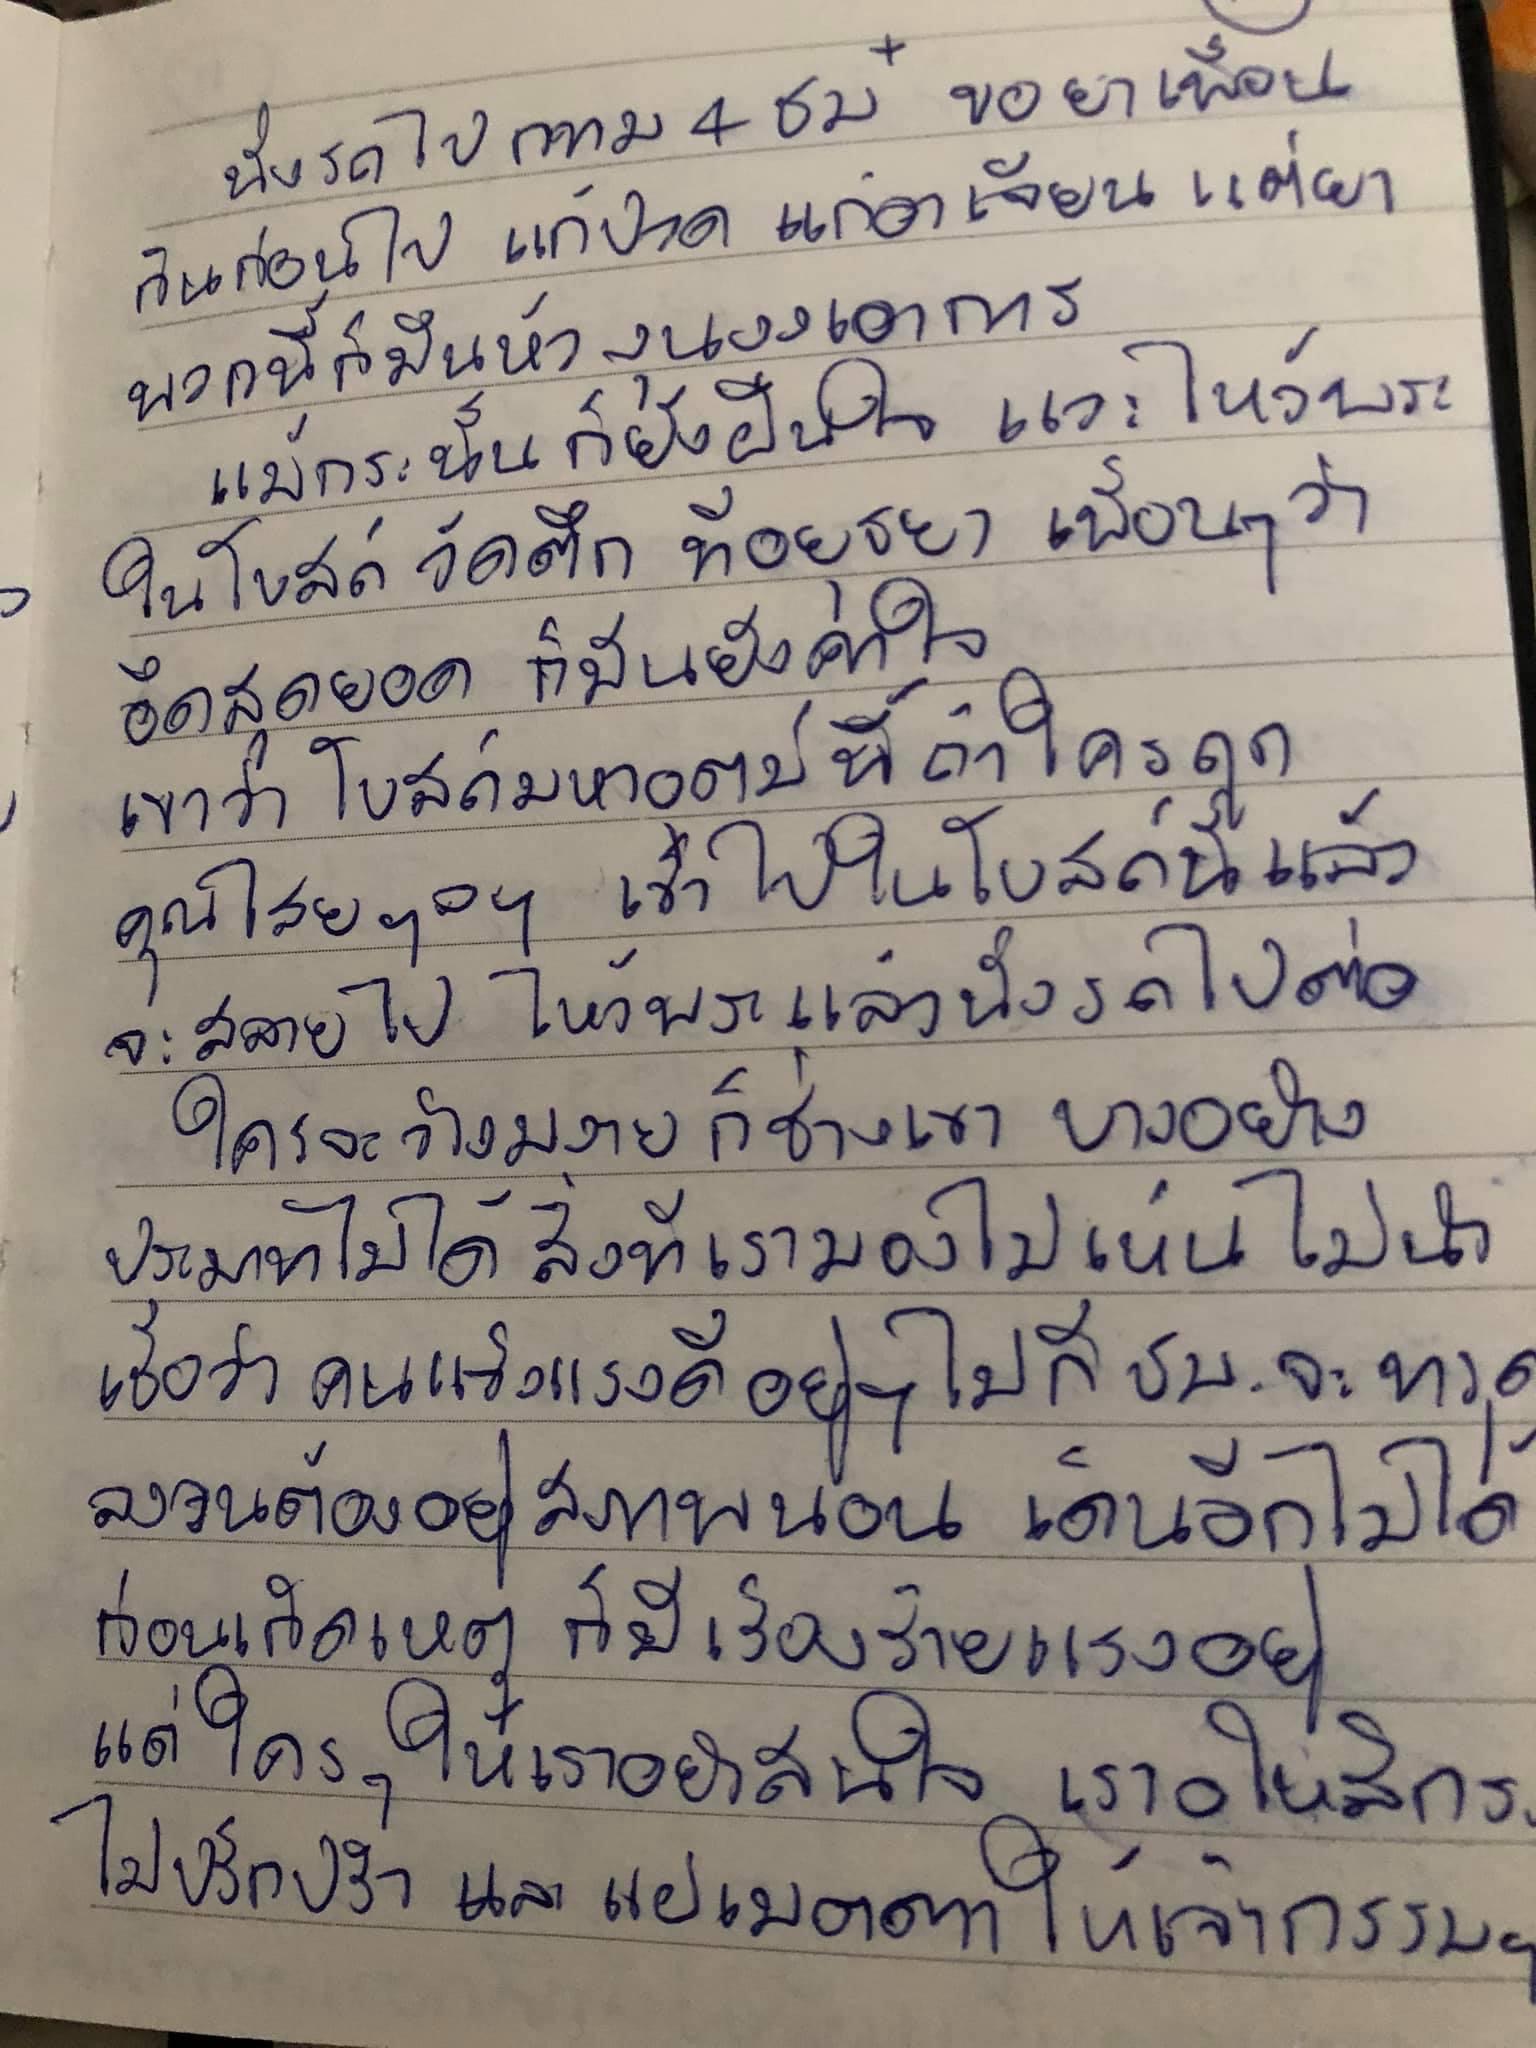 นั่งรถไปตาม 4 ชม + ขอยาเพื่อน
กินก่อนไป แก้ปวด แก้อาเจียน แต่ยา
พวกนี้ก็มึนหัว งุนงงเอาการ
แม้กระนั้นก็ยังฝืนใจ แวะไหว้พระ
ในโบสถ์ วัดตึก ที่อยุธยา เพื่อนๆว่า
อึดสุดยอด ก็มันยังคาใจ
เขาว่า โบสถ์มหาอุตม์นี้ถ้าใครถูก
คุณไสยๆลๆ เข้าไปในโบสถ์นี้แล้ว
จะสลายไป ไหว้พระแล้วนั่งรถไปต่อ
ใครจะว่างมงายก็ช่างเขา บางอย่าง
ประมาทไม่ได้ สิ่งที่เรามองไม่เห็น ไม่น่า
เชื่อว่า คนแข็งแรงดีอยู่ๆ ไม่กี่ ชม. จะทรุด
ลงจนต้องอยู่สภาพนอน เดินอีกไม่ได้
ก่อนเกิดเหตุ ก็มีเรื่องร้ายแรงอยู่
แต่ใครๆให้เราอย่าสนใจ เราอโหสิกร
ไม่ปริกปริา และ แผ่เมตตาให้เจ้ากรรมๆ